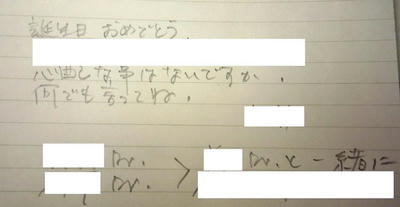 誕生日 おめでとう.
心配な事はないですか.
何でも言ってね.
Dr. > Dr.と一緒に
Dr.